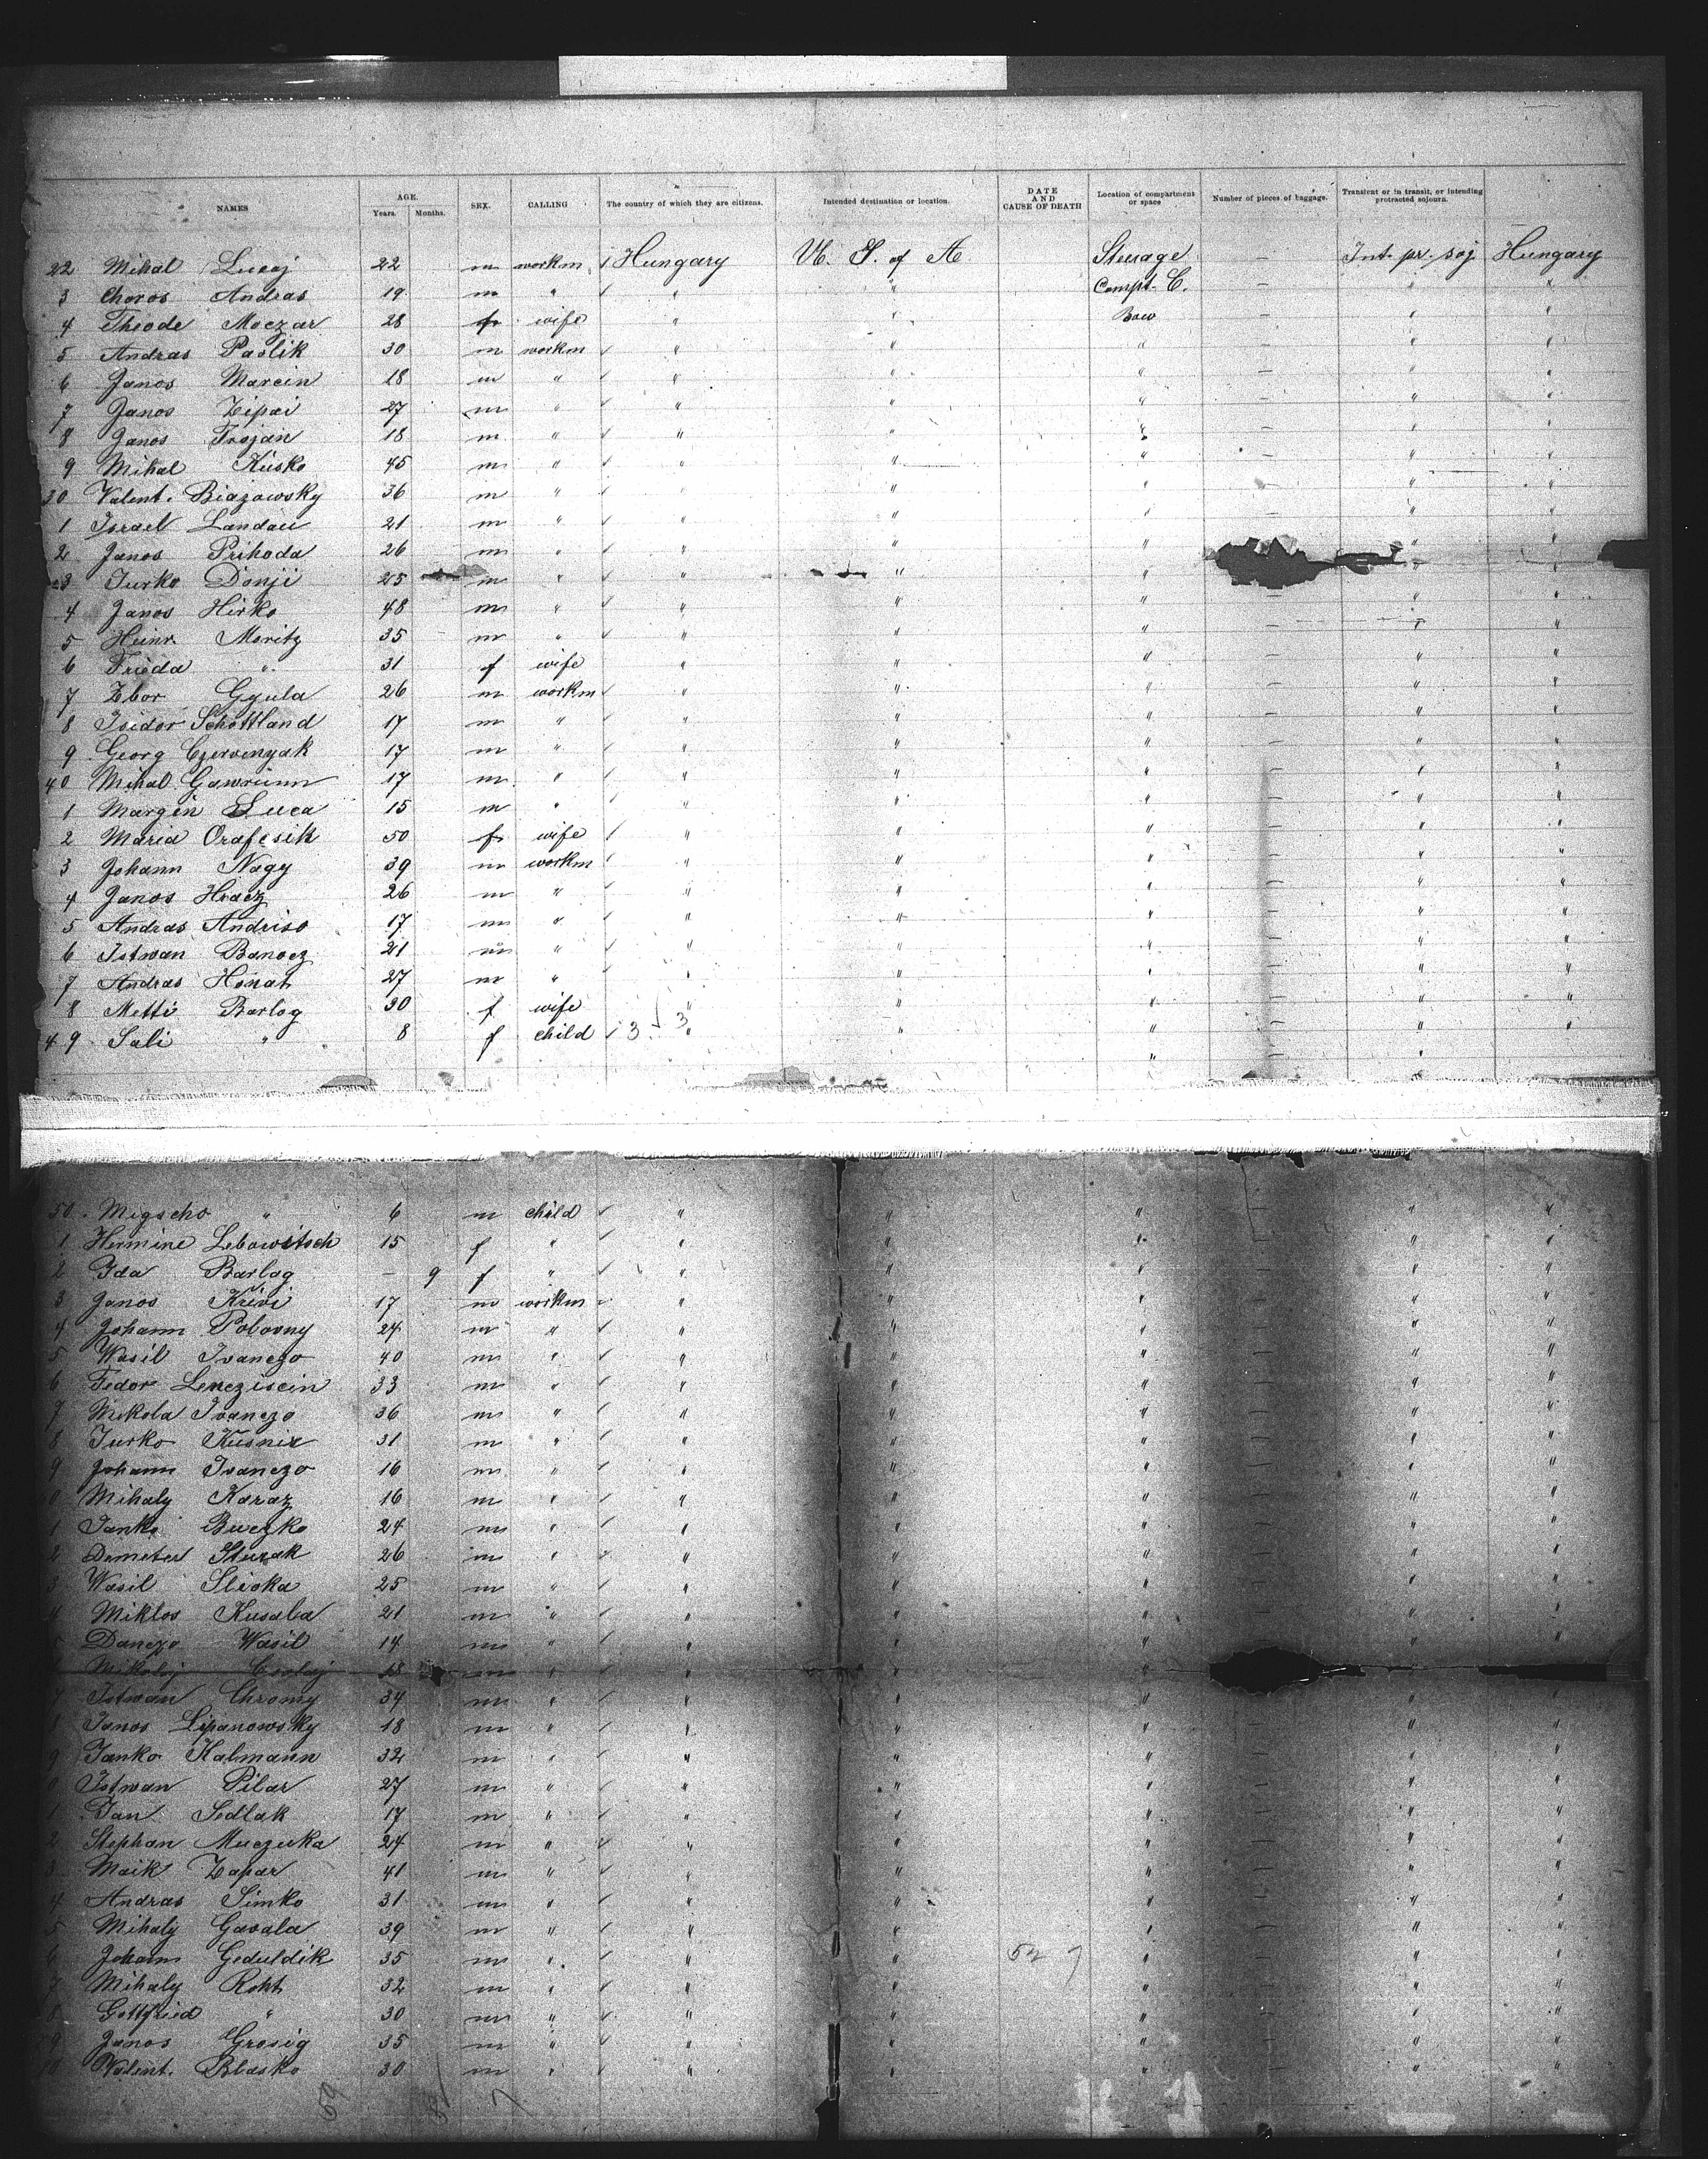 NAMES AGE. Years. Months. SEX. CALLING The country of which they are citizens. Intended destination or location. DATE AND CAUSE OF DEATH Location of compartment or space Number of pieces of baggage. Transient or in transit, or intending protracted sojourn.
22 Mihal Lucaj 22 m workm Hungary U. S. of A Steerage — Int. pr. soj Hungary
3 Choros Andras 19 m " " " Compt. C. — " "
4 Theode Moczar 28 f wife " " Bow — " "
5 Andras Paslik 30 m workm " " " — " "
6 Janos Marcin 18 m " " " " — " "
7 Janos Zipai 27 m " " " " — " "
8 Janos Trojan 18 m " " " " — " "
9 Mihal Kusko 45 m " " " " — " "
30 Valent. Biazowsky 36 m " " " " — " "
1 Israel Landau 21 m " " " " — " "
2 Janos Prihoda 26 m " " " " " "
3 Jurko Donji 25 m " " " " " "
4 Janos Hirko 48 m " " " " — " "
5 Heinr. Moritz 35 m " " " " — " "
6 Frieda " 31 f wife " " " — " "
7 Zbor Gyula 26 m workm " " " — " "
8 Isidor Schottland 17 m " " " " — " "
9 Georg Czervenyak 17 m " " " " — " "
40 Mihal Gawriunn 17 m " " " " — " "
1 Margin Luca 15 m " " " " — " "
2 Maria Orafcsik 50 f wife " " " — " "
3 Johann Nagy 39 m workm " " " — " "
4 Janos Hracz 26 m " " " " — " "
5 Andras Andriso 17 m " " " " — " "
6 Istwan Banocz 21 m " " " " — " "
7 Andras Honat 27 m " " " " — " "
8 Metti Barlog 30 f wife " " " — " "
49 Sali " 8 f child 3 3 " " " — " "
50 Migscho " 6 m child " " " — " "
1 Hermine Lebowitsch 15 f " " " " — " "
2 Ida Barlag — 9 f " " " " — " "
3 Janos Krivi 17 m workm " " " — " "
4 Johann Polovny 24 m " " " " — " "
5 Wasil Ivanczo 40 m " " " " — " "
6 Fedor Lencziscin 33 m " " " " — " "
7 Mikola Ivanczo 36 m " " " " — " "
8 Jurko Kusnir 31 m " " " " — " "
9 Johann Ivanczo 16 m " " " " — " "
0 Mihaly Karaz 16 m " " " " — " "
1 Janko Buczko 24 m " " " " — " "
2 Demeter Sturak 26 m " " " " — " "
3 Wasil Slioka 25 m " " " " — " "
4 Miklos Kusala 21 m " " " " — " "
5 Danczo Wasil 14 m " " " " — " "
Mikolaj 18 m " " " " " "
7 Istwan Chromy 34 m " " " " " "
8 Janos Lipanowsky 18 m " " " " — " "
9 Janko Kalmann 32 m " " " " — " "
0 Istwan Pilar 27 m " " " " — " "
1 Jan Sedlak 17 m " " " " — " "
2 Stephan Muczuka 24 m " " " " — " "
3 Maik Zapar 41 m " " " " — " "
4 Andras Simko 31 m " " " " — " "
5 Mihaly Gavala 39 m " " " " — " "
6 Johann Geduldik 35 m " " " " — " "
7 Mihaly Roht 32 m " " " " — " "
8 Gottfried " 30 m " " " " — " "
9 Janos Grosig 35 m " " " " — " "
0 Valent. Blasko 30 m " " " " — " "
59